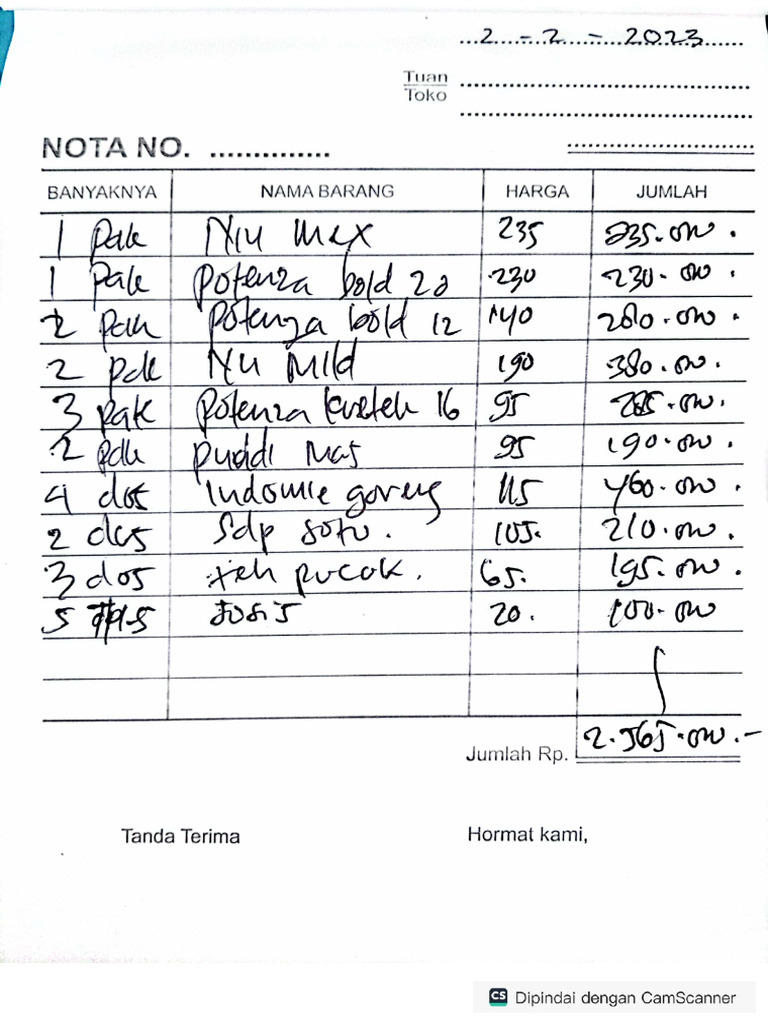 2 - 2 - 2023
Tuan
Toko
NOTA NO. ..............
BANYAKNYA NAMA BARANG HARGA JUMLAH
1 pak Niu Max 235 235.000.
1 pak potenza bold 20 230 230.000.
2 pak potenza bold 12 140 280.000.
2 pak Niu Mild 190 380.000.
3 pak potenza kretek 16 95 285.000.
2 pak puddi Mas 95 190.000.
4 dos Indomie goreng 115 460.000.
2 dos Sdp soto. 105. 210.000.
3 dos teh pucok. 65. 195.000.
5 sosis 20. 100.000
Jumlah Rp. 2.565.000.-
Tanda Terima Hormat kami,
CS Dipindai dengan CamScanner